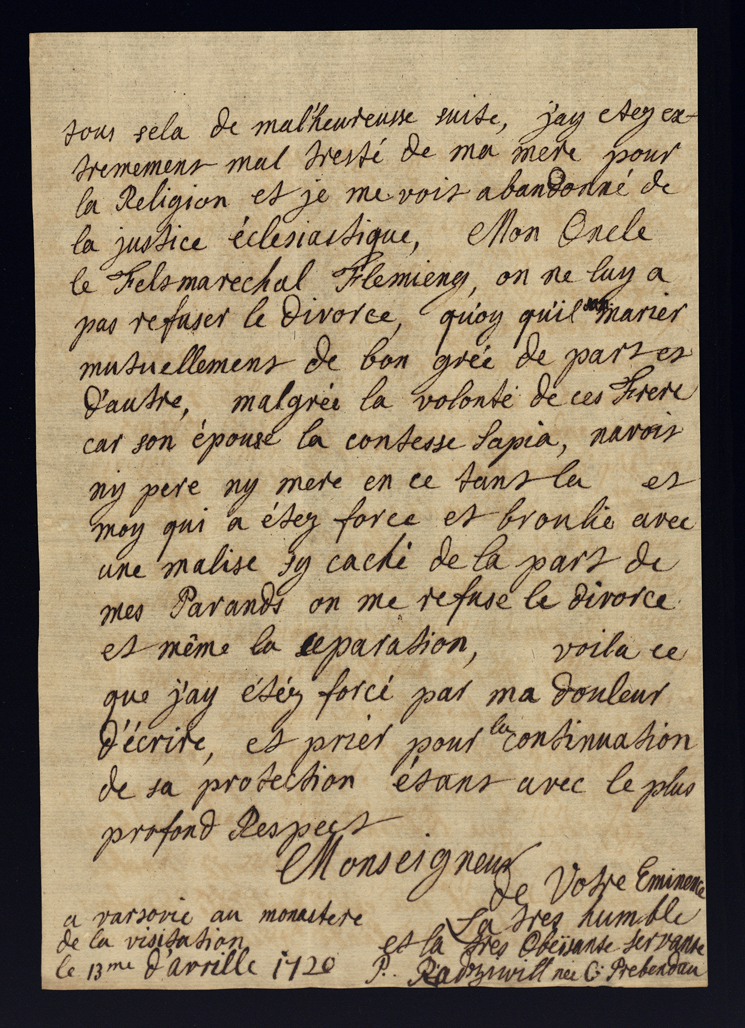 tous sela de mal'heureusse suite, j'ay etez ex-
tremement mal tresté de ma mere pour
la Religion et je me voit abandonné de
la justice éclesiastique, Mon Oncle
le Felsmarechal Flemieng, on ne luy a
pas refuser le divorce, quoy qu'il marier
mutuellement de bon grée de part et
d'autre, malgrée la volonté de ces Frere
car son épouse la contesse Sapia, navoit
ny pere ny mere en ce tant la et
moy qui a étez force et broulie avec
une malise sy caché de la part de
mes Parands on me refuse le divorce
et même la separation, voila ce
que j'ay étéz forcé par ma douleur
d'écrire, et prier pour la continuation
de sa protection étant avec le plus
profond Respect
Monseigneur
de Votre Eminence
La tres humble
et la tres Obeïsante servante
P. Radziwill née C: Prebendau
a varsovie au monastere
de la visitation
le 13me d'avrille 1720